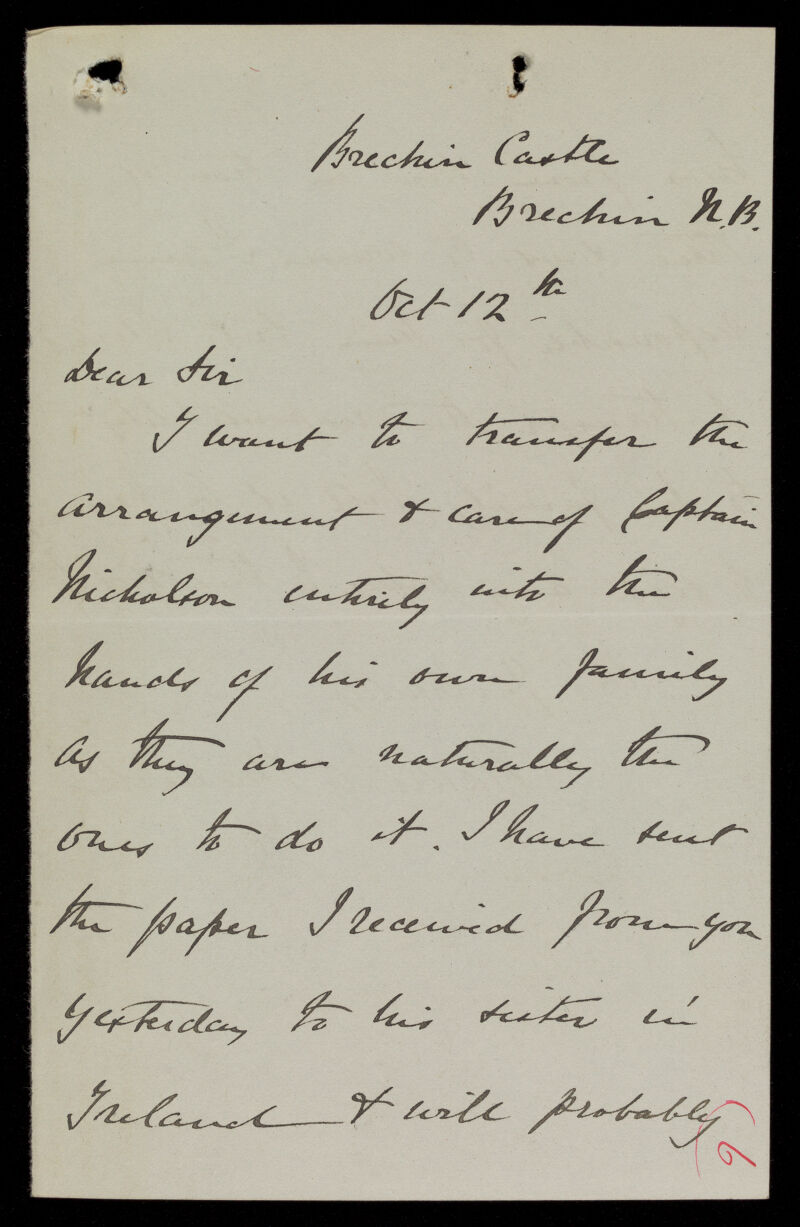 Brechin Castle
Brechin N.B.
Oct 12th
Dear Sir
I want to transfer the
arrangement & care of Captain
Nicholson entirely into the
hands of his own family
as they are naturally the
ones to do it. I have sent
the paper I received from you
yesterday to his sister in
Ireland & will probably
9